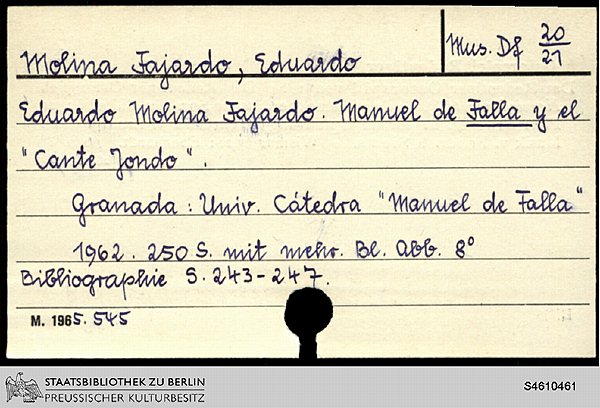 Molina Fajardo, Eduardo
Mus. Df 20/21
Eduardo Molina Fajardo. Manuel de Falla y el
"Cante Jondo".
Granada : Univ. Cátedra "Manuel de Falla"
1962. 250 S. mit mehr. Bl. Abb. 8°
Bibliographie S. 243-247.
M. 1965. 545
STAATSBIBLIOTHEK ZU BERLIN
PREUSSISCHER KULTURBESITZ
S4610461